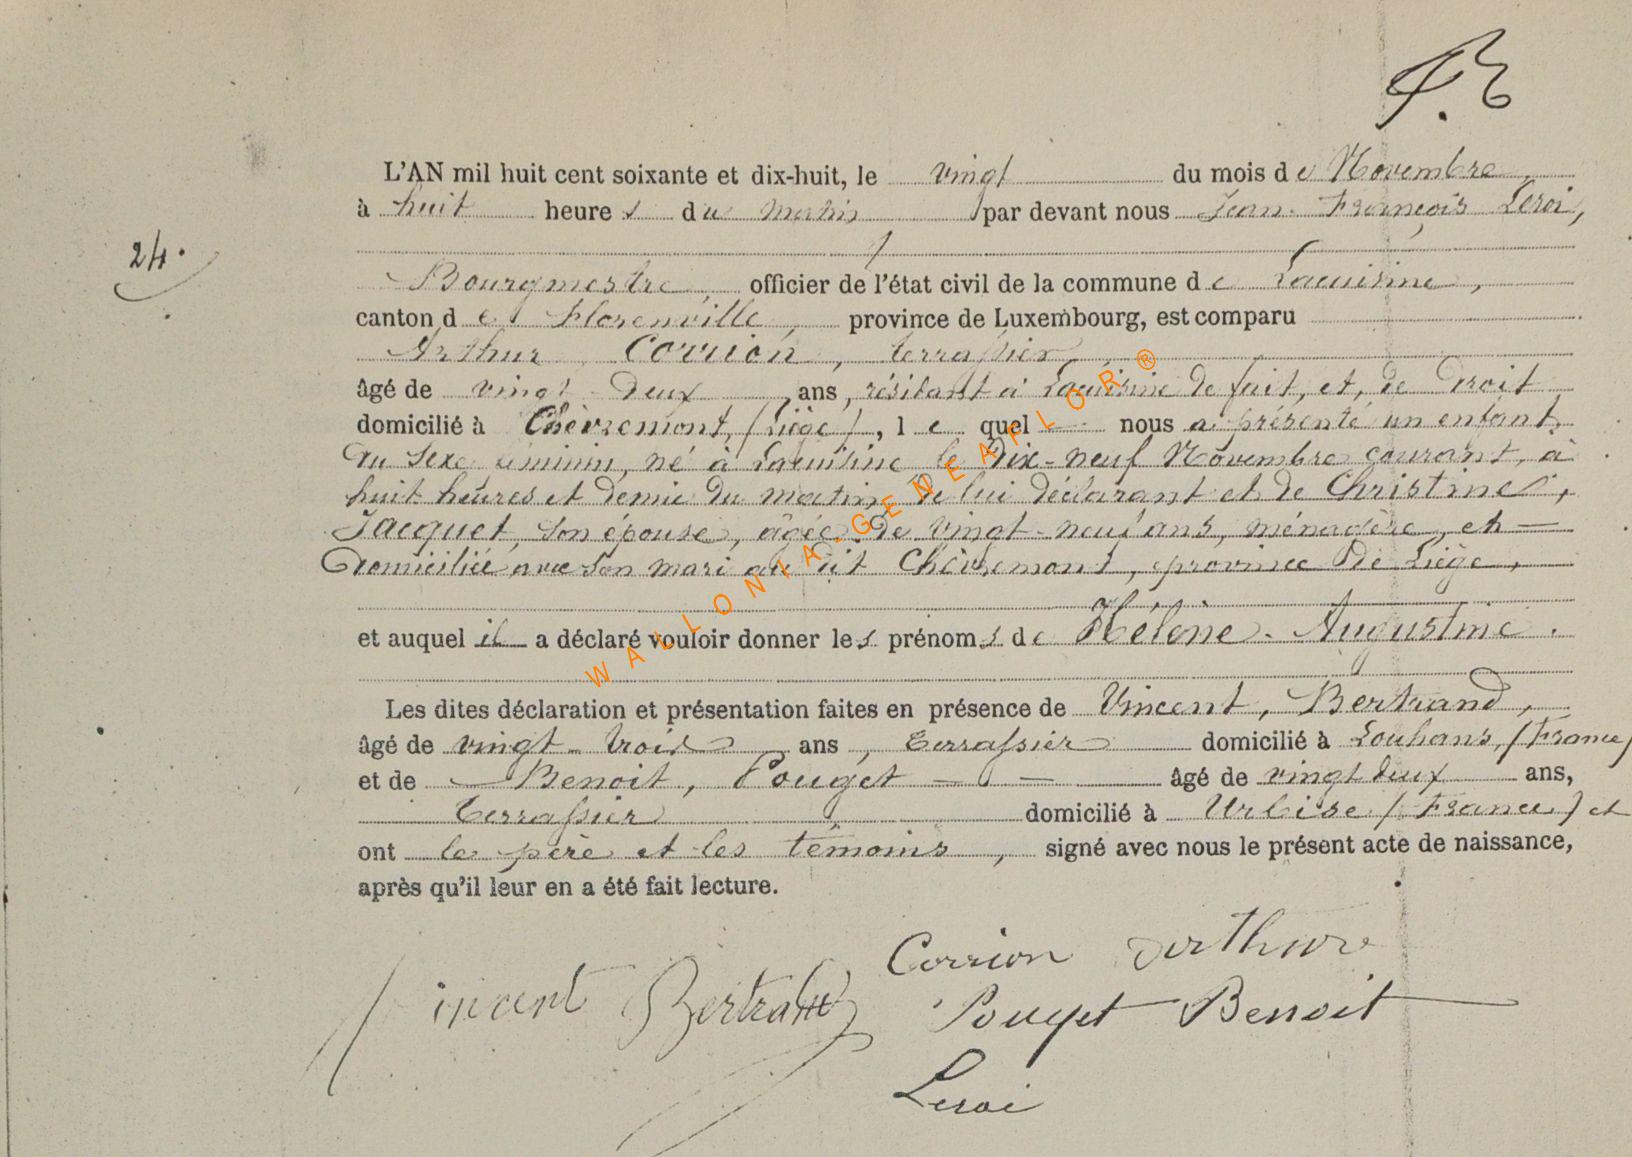 L'AN mil huit cent soixante et dix-huit, le vingt du mois de Novembre
24.
à huit heures du matin par devant nous Jean François Leroi,
Bourgmestre, officier de l'état civil de la commune de Lacuisine,
canton de Florenville, province de Luxembourg, est comparu
Arthur Corrion, terrassier
âgé de vingt deux ans, résidant à Lacuisine de fait, et, de droit
domicilié à Chèvremont, (Liège), lequel nous a présenté un enfant
du sexe féminin, né à Lacuisine le dix-neuf Novembre courant, à
huit heures et demie du matin, de lui déclarant et de Christine,
Jacquet, son épouse, âgée de vingt-neuf ans, ménagère, et
domiciliée avec son mari au dit Chèvremont, province de Liège,
et auquel il a déclaré vouloir donner les prénoms de Hélène-Augustine.
Les dites déclaration et présentation faites en présence de Vincent, Bertrand,
âgé de vingt-trois ans, terrassier domicilié à Louhans, (France)
et de Benoit, Pouget âgé de vingt deux ans,
terrassier domicilié à Urbise (France) et
ont le père et les témoins, signé avec nous le présent acte de naissance,
après qu'il leur en a été fait lecture.
Corrion Arthure
Vincent Bertrand
Pouget Benoit
Leroi
WALLONIA-GENEAFLOR®